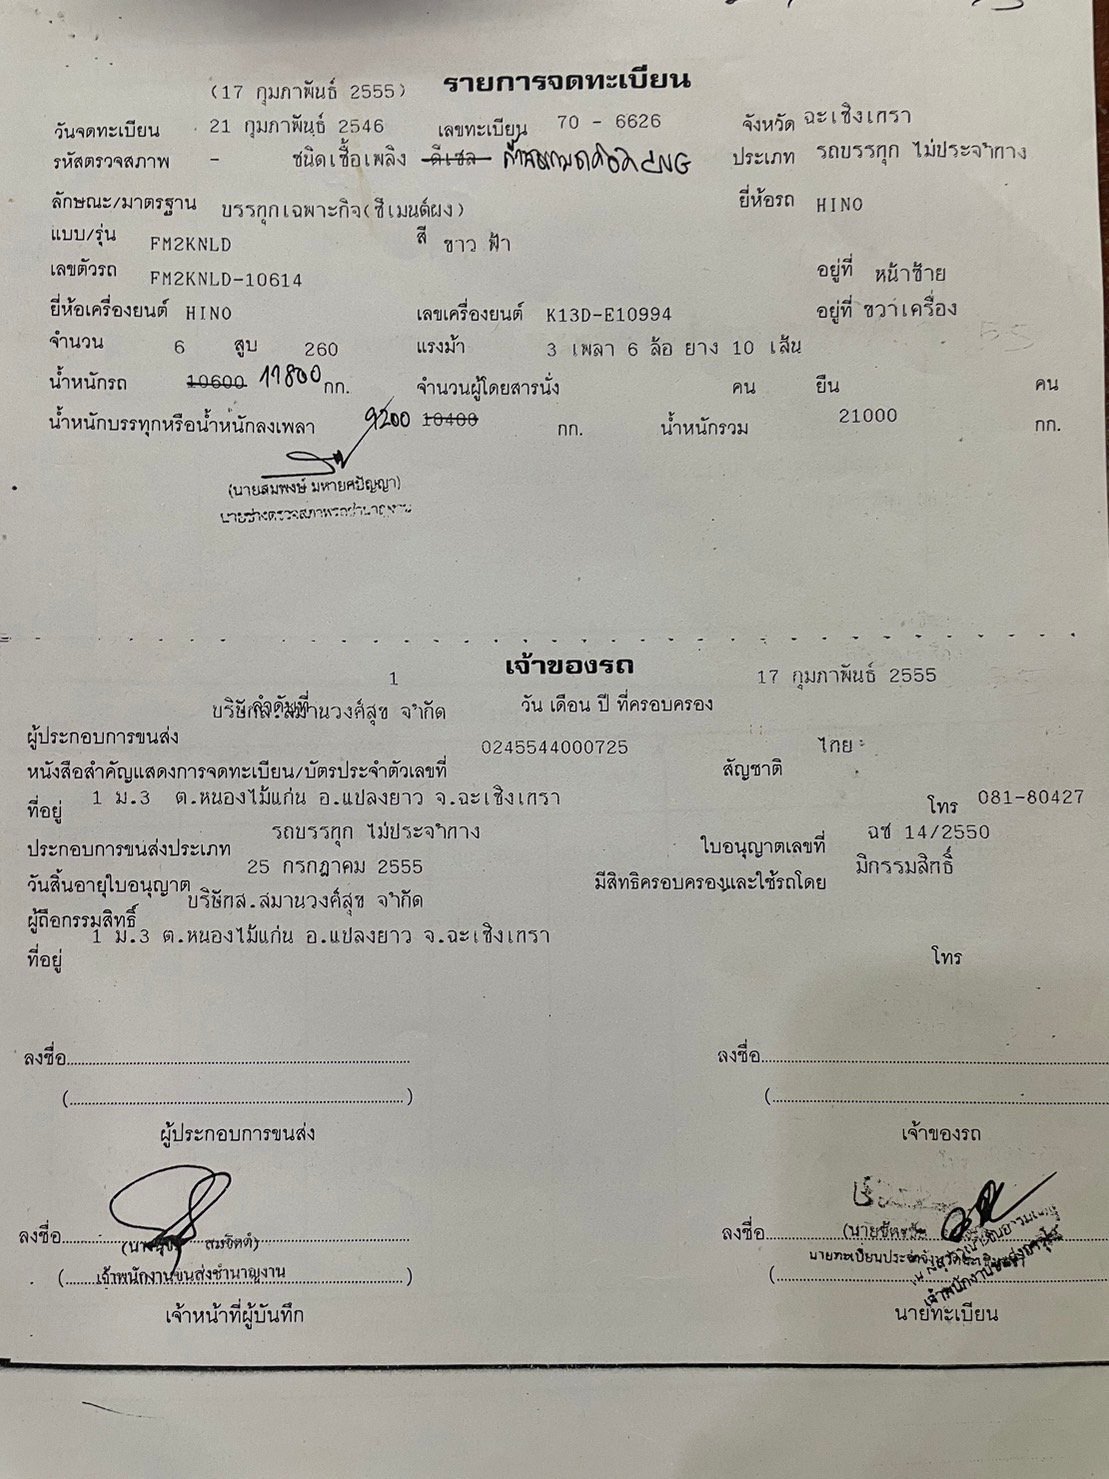 (17 กุมภาพันธ์ 2555) รายการจดทะเบียน
วันจดทะเบียน 21 กุมภาพันธ์ 2546 เลขทะเบียน 70 - 6626 จังหวัด ฉะเชิงเทรา
รหัสตรวจสภาพ - ชนิดเชื้อเพลิง ดีเซล CNG ประเภท รถบรรทุก ไม่ประจำทาง
ลักษณะ/มาตรฐาน บรรทุกเฉพาะกิจ(ซีเมนต์ผง) ยี่ห้อรถ HINO
แบบ/รุ่น FM2KNLD สี ขาว ฟ้า
เลขตัวรถ FM2KNLD-10614 อยู่ที่ หน้าซ้าย
ยี่ห้อเครื่องยนต์ HINO เลขเครื่องยนต์ K13D-E10994 อยู่ที่ ขวาเครื่อง
จำนวน 6 สูบ 260 แรงม้า 3 เพลา 6 ล้อ ยาง 10 เส้น
น้ำหนักรถ 10600 11800 กก. จำนวนผู้โดยสารนั่ง คน ยืน คน
น้ำหนักบรรทุกหรือน้ำหนักลงเพลา 9200 10400 กก. น้ำหนักรวม 21000 กก.
(นายสมพงษ์ มหายศปัญญา)
นายช่างตรวจสภาพรถชำนาญงาน
เจ้าของรถ
ลำดับที่ 1 วัน เดือน ปี ที่ครอบครอง 17 กุมภาพันธ์ 2555
ผู้ประกอบการขนส่ง บริษัทส.สมานวงศ์สุข จำกัด
หนังสือสำคัญแสดงการจดทะเบียน/บัตรประจำตัวเลขที่ 0245544000725 สัญชาติ ไทย
ที่อยู่ 1 ม.3 ต.หนองไม้แก่น อ.แปลงยาว จ.ฉะเชิงเทรา โทร 081-80427
ประกอบการขนส่งประเภท รถบรรทุก ไม่ประจำทาง ใบอนุญาตเลขที่ ฉช 14/2550
วันสิ้นอายุใบอนุญาต 25 กรกฎาคม 2555 มีสิทธิครอบครองและใช้รถโดย มีกรรมสิทธิ์
ผู้ถือกรรมสิทธิ์ บริษัทส.สมานวงศ์สุข จำกัด
ที่อยู่ 1 ม.3 ต.หนองไม้แก่น อ.แปลงยาว จ.ฉะเชิงเทรา โทร
ลงชื่อ ลงชื่อ
( ) (
ผู้ประกอบการขนส่ง เจ้าของรถ
ลงชื่อ สมจิตต์) ลงชื่อ
(เจ้าพนักงานขนส่งชำนาญงาน) (นายทะเบียนประจำจังหวัดฉะเชิงเทรา
เจ้าหน้าที่ผู้บันทึก นายทะเบียน